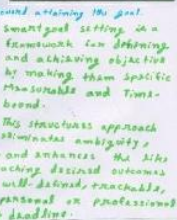 oward attaining the goal.
Smart goal setting is a
framework for defining
and achieving objective
by making them specific
Measurable and Time-
bound.
This structures approach
eliminates ambiguity,
and enhances the like
aching desired outcomes
well-defined, trackable,
personal or professional
deadline.